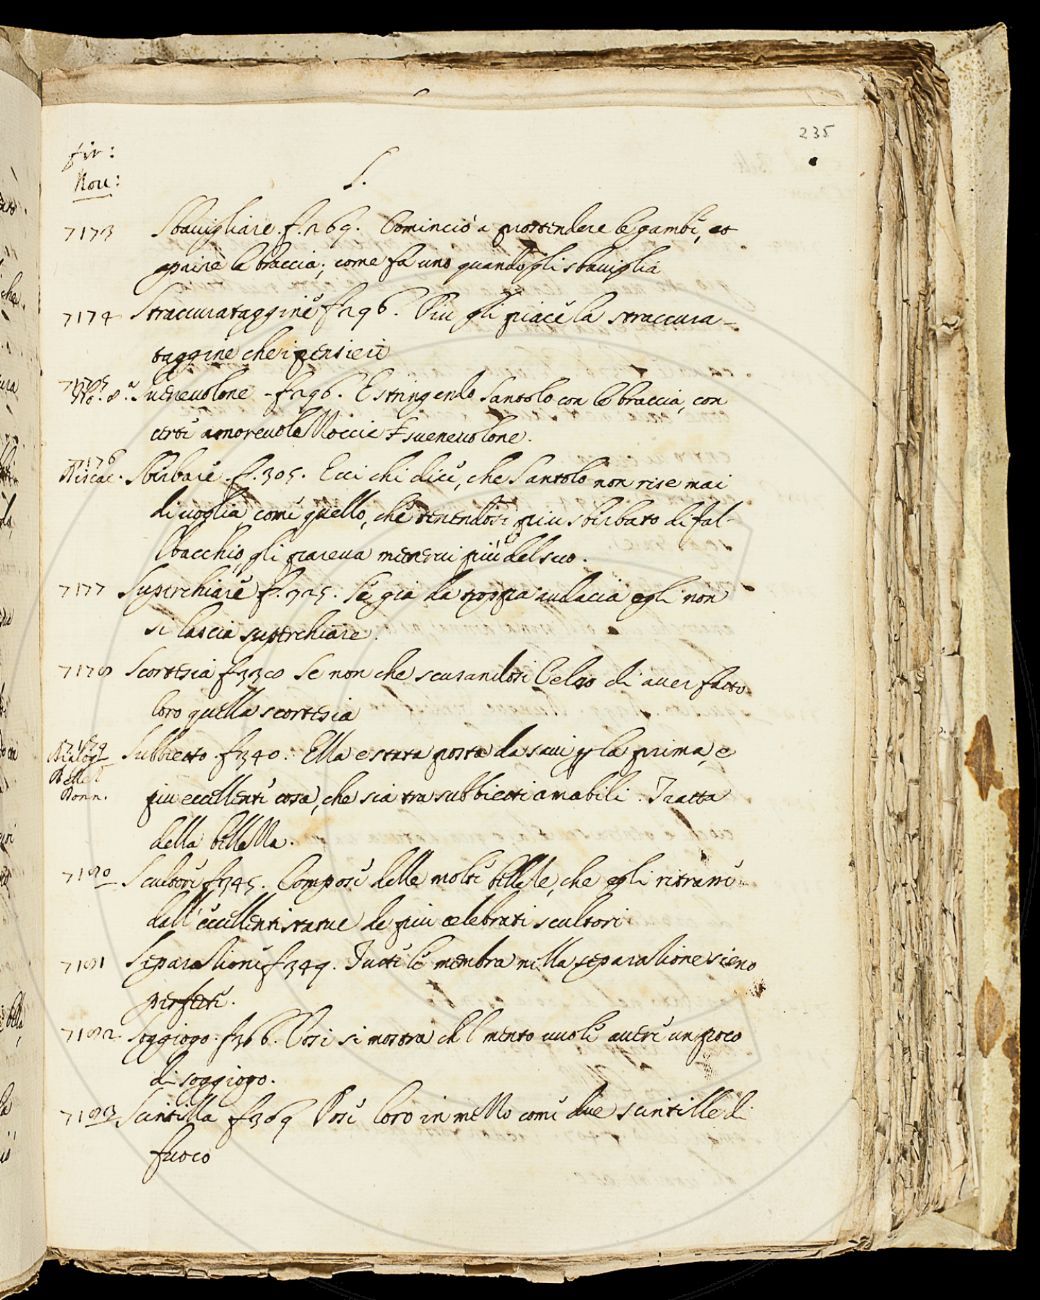 235
fir:
Nou:
S.
7173 Sbavigliare. f. 269. Cominciò a prostendere le gambe, et
aprire le braccia, come fa uno quando gli sbaviglia
7174 Straccurataggine f 296. Più gli piace la straccura-
taggine che i pensieri
7175
No. 8. Suenevolone - f 296. E stringendo Santolo con le braccia, con
certi amorevolezzoccie suenevolone.
7176
Sbirbare. f. 305. Ecci chi dice, che Santolo non rise mai
di voglia come quello, che tenendosi più sbirbato di Fal-
lbacchio, gli pareva menerui più del suo.
7177 Superchiare f. 325. Se già da troppa audacia egli non
si lascia superchiare.
7178 Scortesia f 330 Se non che scusandosi Celso di aver fatto
loro quella scortesia
7179
Bellez
Donn.
Subbietto f 340. Ella è stata posta da savi p la prima, e
più eccellente cosa, che sia tra subbietti amabili. Tratta
della bellezza.
7180 Scultori f 345. Compose delle molte bellezze, che egli ritrasse
dall'eccellenti statue de più celebrati scultori
7181 Separazione f 349. Tutte le membra nella separazione sieno
perfette.
7182 Soggiogo. f 366. Così si mostra ch'l mento vuole avere un poco
di soggiogo.
7183 Scintilla f 369 Pose loro in mezzo come due scintille di
fuoco